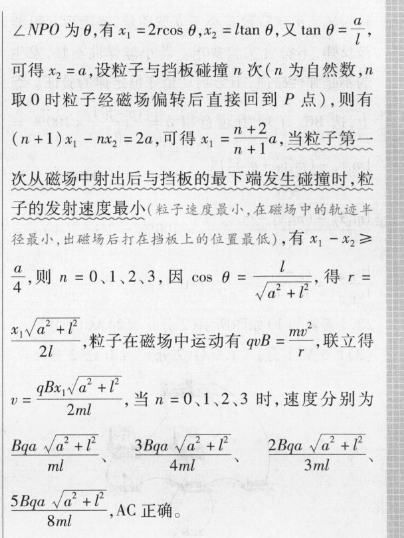 ∠NPO 为 θ,有 x₁ =2rcos θ,x₂ =ltan θ,又 tan θ = a/l ,
可得 x₂ = a,设粒子与挡板碰撞 n 次(n 为自然数,n
取 0 时粒子经磁场偏转后直接回到 P 点),则有
(n+1)x₁ - nx₂ =2a,可得 x₁ = (n+2)/(n+1) a,当粒子第一
次从磁场中射出后与挡板的最下端发生碰撞时,粒
子的发射速度最小(粒子速度最小,在磁场中的轨迹半
径最小,出磁场后打在挡板上的位置最低),有 x₁ - x₂ ≥
a/4 ,则 n = 0、1、2、3,因 cos θ = l/√(a² + l²) ,得 r =
x₁√(a² + l²)/2l ,粒子在磁场中运动有 qvB = mv²/r ,联立得
v = qBx₁√(a² + l²)/2ml ,当 n = 0、1、2、3 时,速度分别为
Bqa √(a² + l²)/ml 、 3Bqa √(a² + l²)/4ml 、 2Bqa √(a² + l²)/3ml 、
5Bqa √(a² + l²)/8ml ,AC 正确。